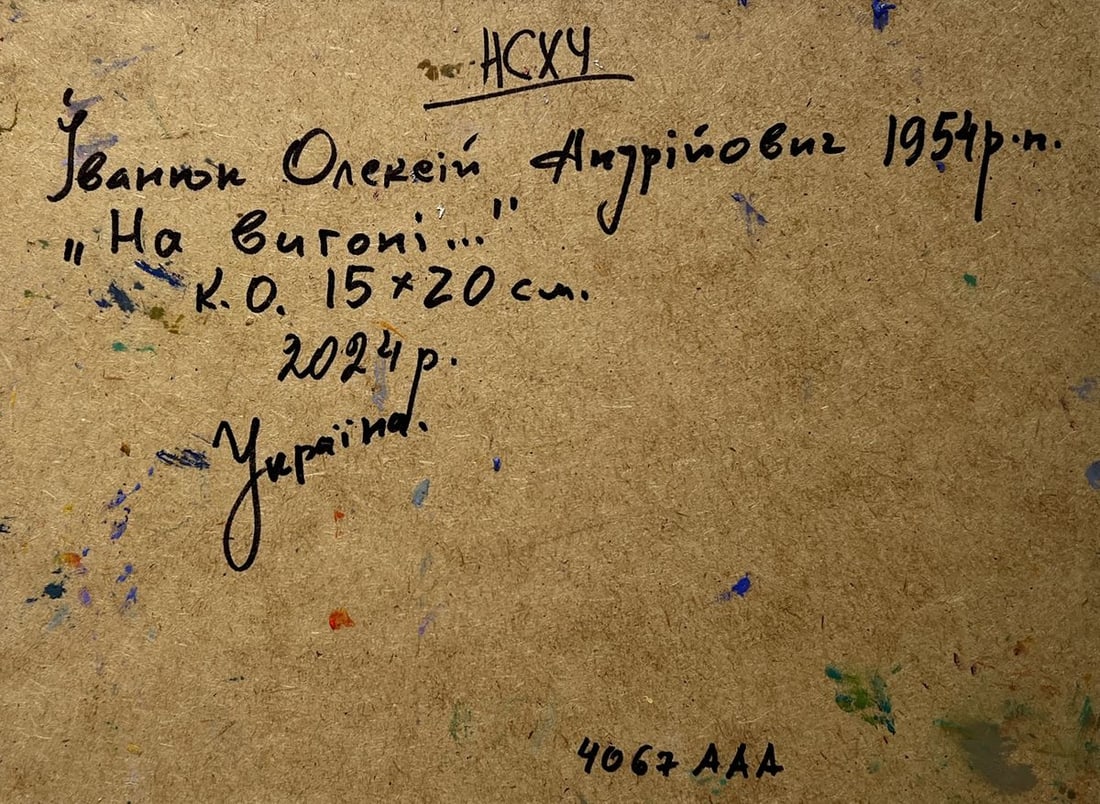 НСХУ
Іванюк Олексій Андрійович 1954р.н.
„На вигоні..."
к.о. 15×20 см.
2024р.
Україна.
4067 ААА